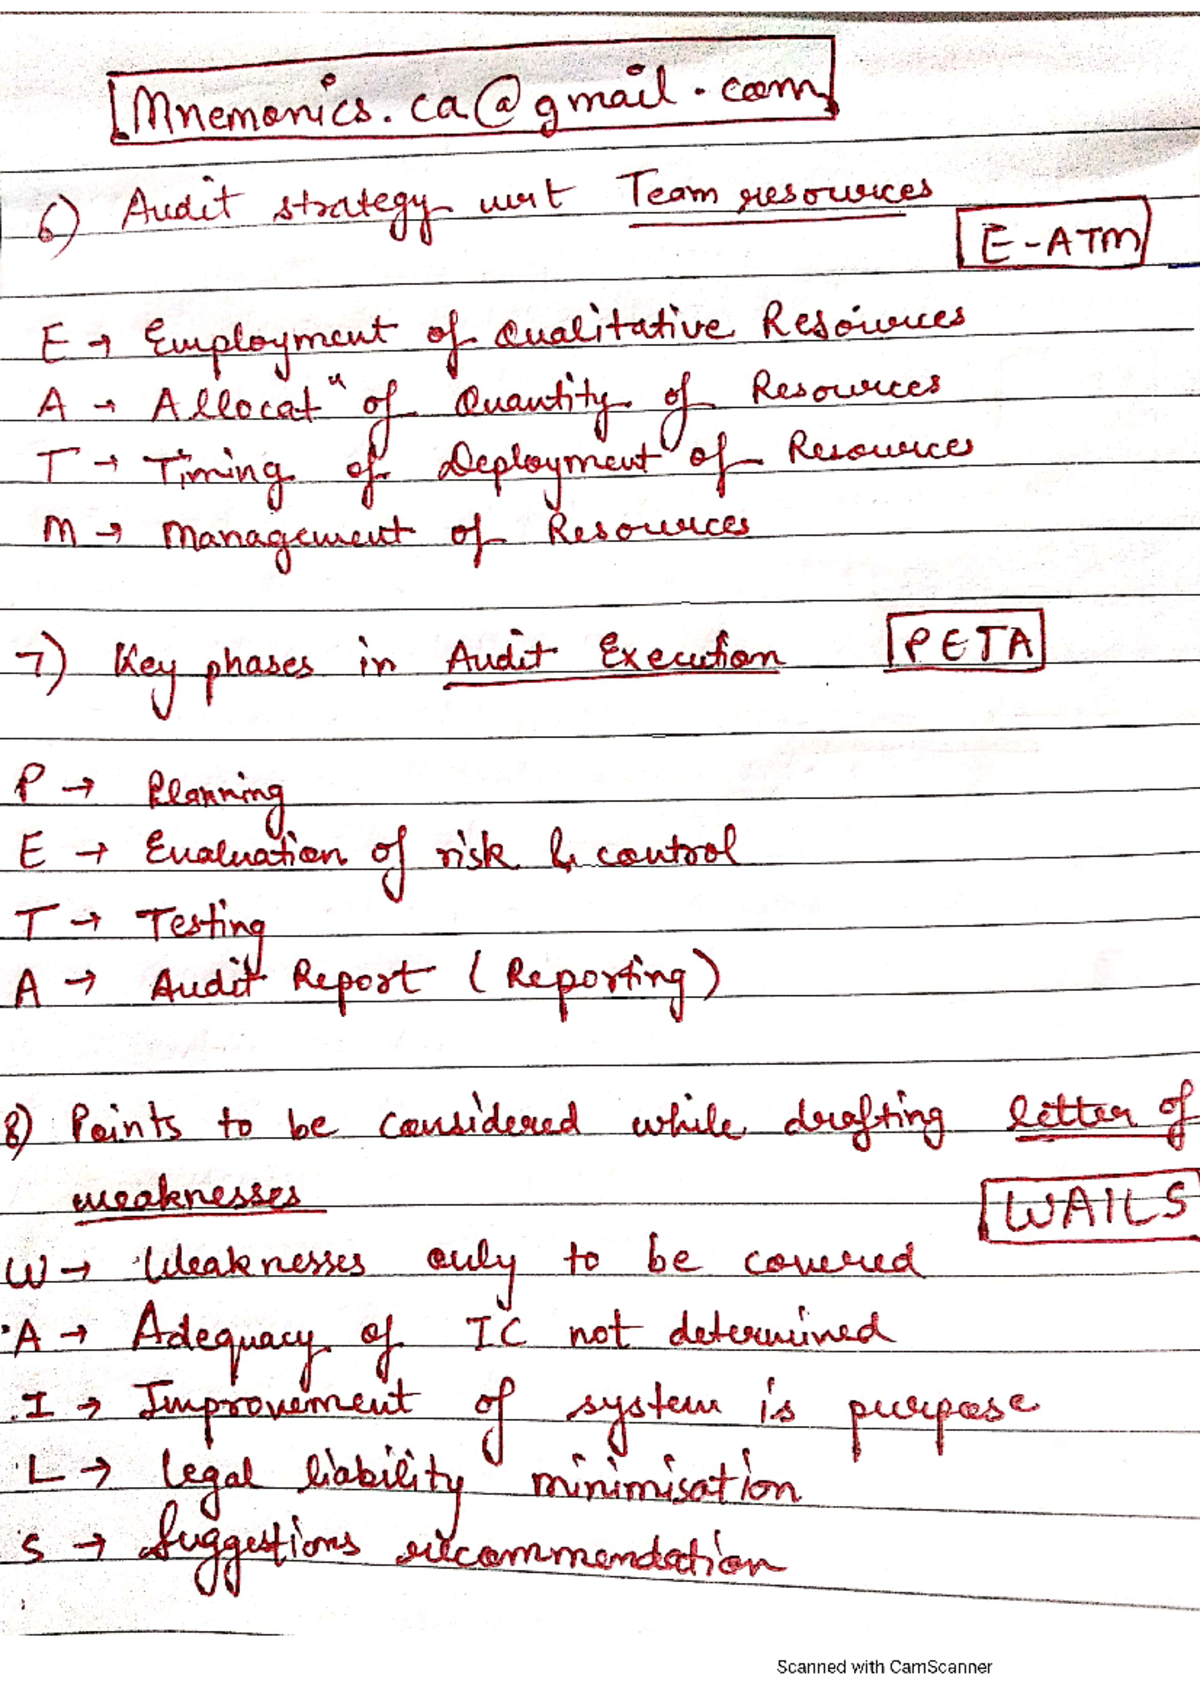 Mnemonics.ca@gmail.com
6) Audit strategy wrt Team resources
E-ATM
E → Employment of Qualitative Resources
A → Allocatⁿ of Quantity of Resources
T → Timing of Deployment of Resources
M → Management of Resources
7) Key phases in Audit Execution
PETA
P → Planning
E → Evaluation of risk & control
T → Testing
A → Audit Report (Reporting)
8) Points to be considered while drafting letter of
weaknesses
WAILS
W → Weaknesses only to be covered
A → Adequacy of IC not determined
I → Improvement of system is purpose
L → legal liability minimisation
S → Suggestions recommendation
Scanned with CamScanner